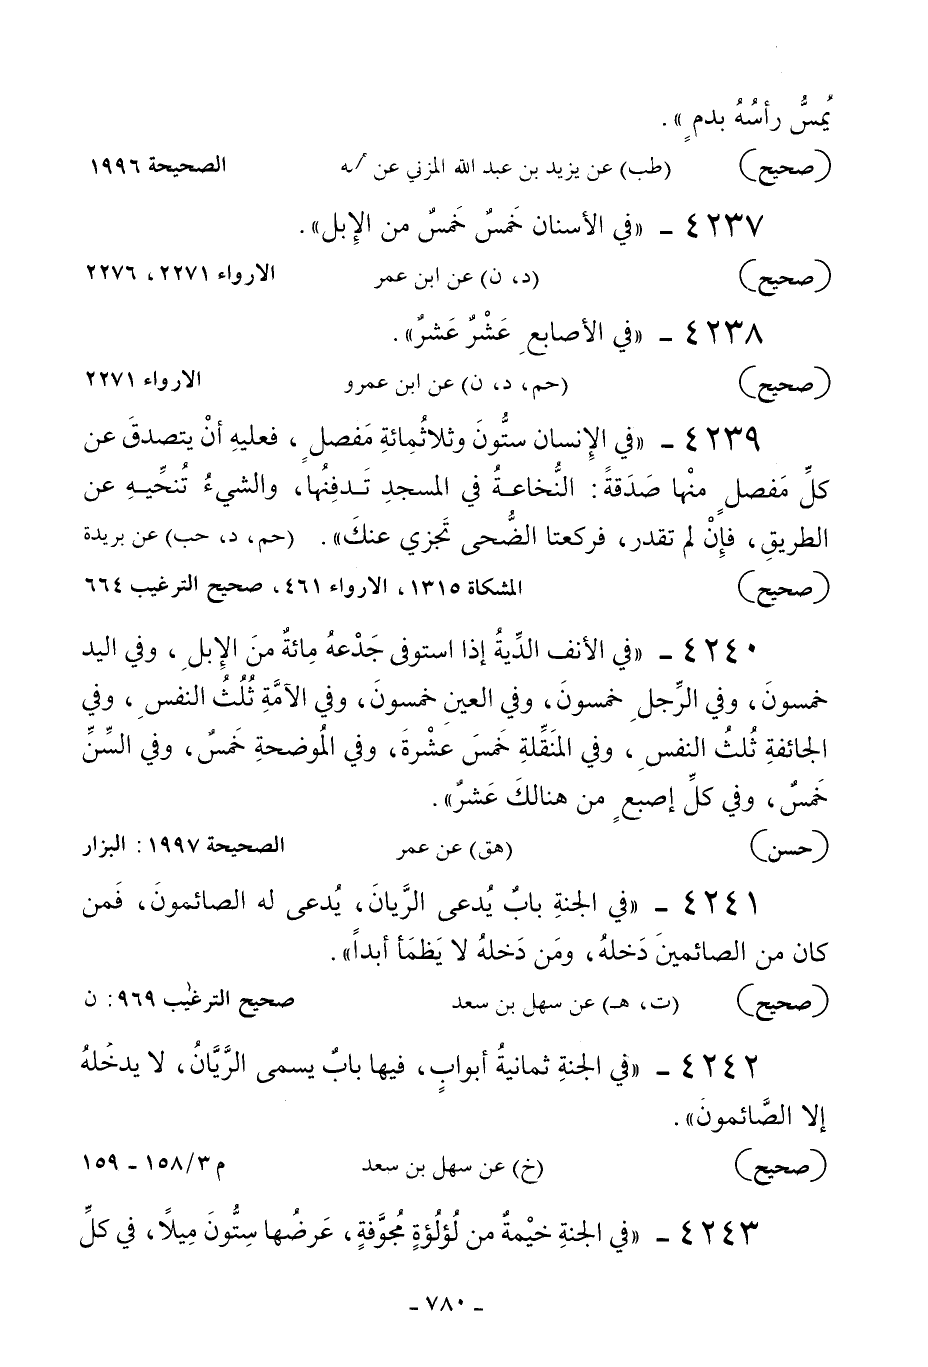 يُمسُّ رأسُهُ بدمٍ».
(صحيح) (طب) عن يزيد بن عبد الله المزني عن الصحيحة ١٩٩٦
٤٢٣٧ ـ «في الأسنان خَمسٌ خَمسٌ من الإِبل».
(صحيح) (د، ن) عن ابن عمر الارواء ٢٢٧١، ٢٢٧٦
٤٢٣٨ ـ «في الأصابعِ عَشْرٌ عَشرٌ».
(صحيح) (حم، د، ن) عن ابن عمرو الارواء ٢٢٧١
٤٢٣٩ ـ «في الإِنسان ستُّونَ وثلاثُمِائةِ مَفصلٍ، فعليهِ أنْ يتصدقَ عن
كلِّ مَفصلٍ منْها صَدَقةً: النُّخاعـةُ في المسجدِ تَـدفِنُها، والشيءُ تُنحِّيـهِ عن
الطريقِ، فإِنْ لم تقدر، فركعتا الضُّحى تَجزي عنكَ». (حم، د، حب) عن بريدة
(صحيح) المشكاة ١٣١٥، الارواء ٤٦١، صحيح الترغيب ٦٦٤
٤٢٤٠ ـ «في الأنف الدِّيةُ إذا استوفى جَدْعهُ مِائةٌ منَ الإِبلِ، وفي اليد
خمسونَ، وفي الرِّجلِ خمسونَ، وفي العينِ خمسونَ، وفي الآمَّةِ ثُلُثُ النفسِ، وفي
الجائفةِ ثُلثُ النفسِ، وفي المنَقِّلةِ خَمسَ عشْرةَ، وفي المُوضحةِ خَمسٌ، وفي السِّنِّ
خَمسٌ، وفي كلِّ إصبعٍ من هنالكَ عَشرٌ».
(حسن) (هق) عن عمر الصحيحة ١٩٩٧: البزار
٤٢٤١ ـ «في الجنةِ بابٌ يُدعى الرَّيانَ، يُدعى له الصائمونَ، فَمن
كان من الصائمينَ دَخلهُ، ومَن دَخلهُ لا يَظمَأ أبداً».
(صحيح) (ت، هـ) عن سهل بن سعد صحيح الترغيب ٩٦٩: ن
٤٢٤٢ ـ «في الجنةِ ثمانيةُ أبوابٍ، فيها بابٌ يسمى الرَّيَّانُ، لا يدخُلهُ
إلا الصَّائمونَ».
(صحيح) (خ) عن سهل بن سعد م ٣/١٥٨ ـ ١٥٩
٤٢٤٣ ـ «في الجنةِ خيْمةٌ من لُؤلُؤةٍ مُجوَّفةٍ، عَرضُها سِتُّونَ مِيلاً، في كلِّ
ـ ٧٨٠ ـ